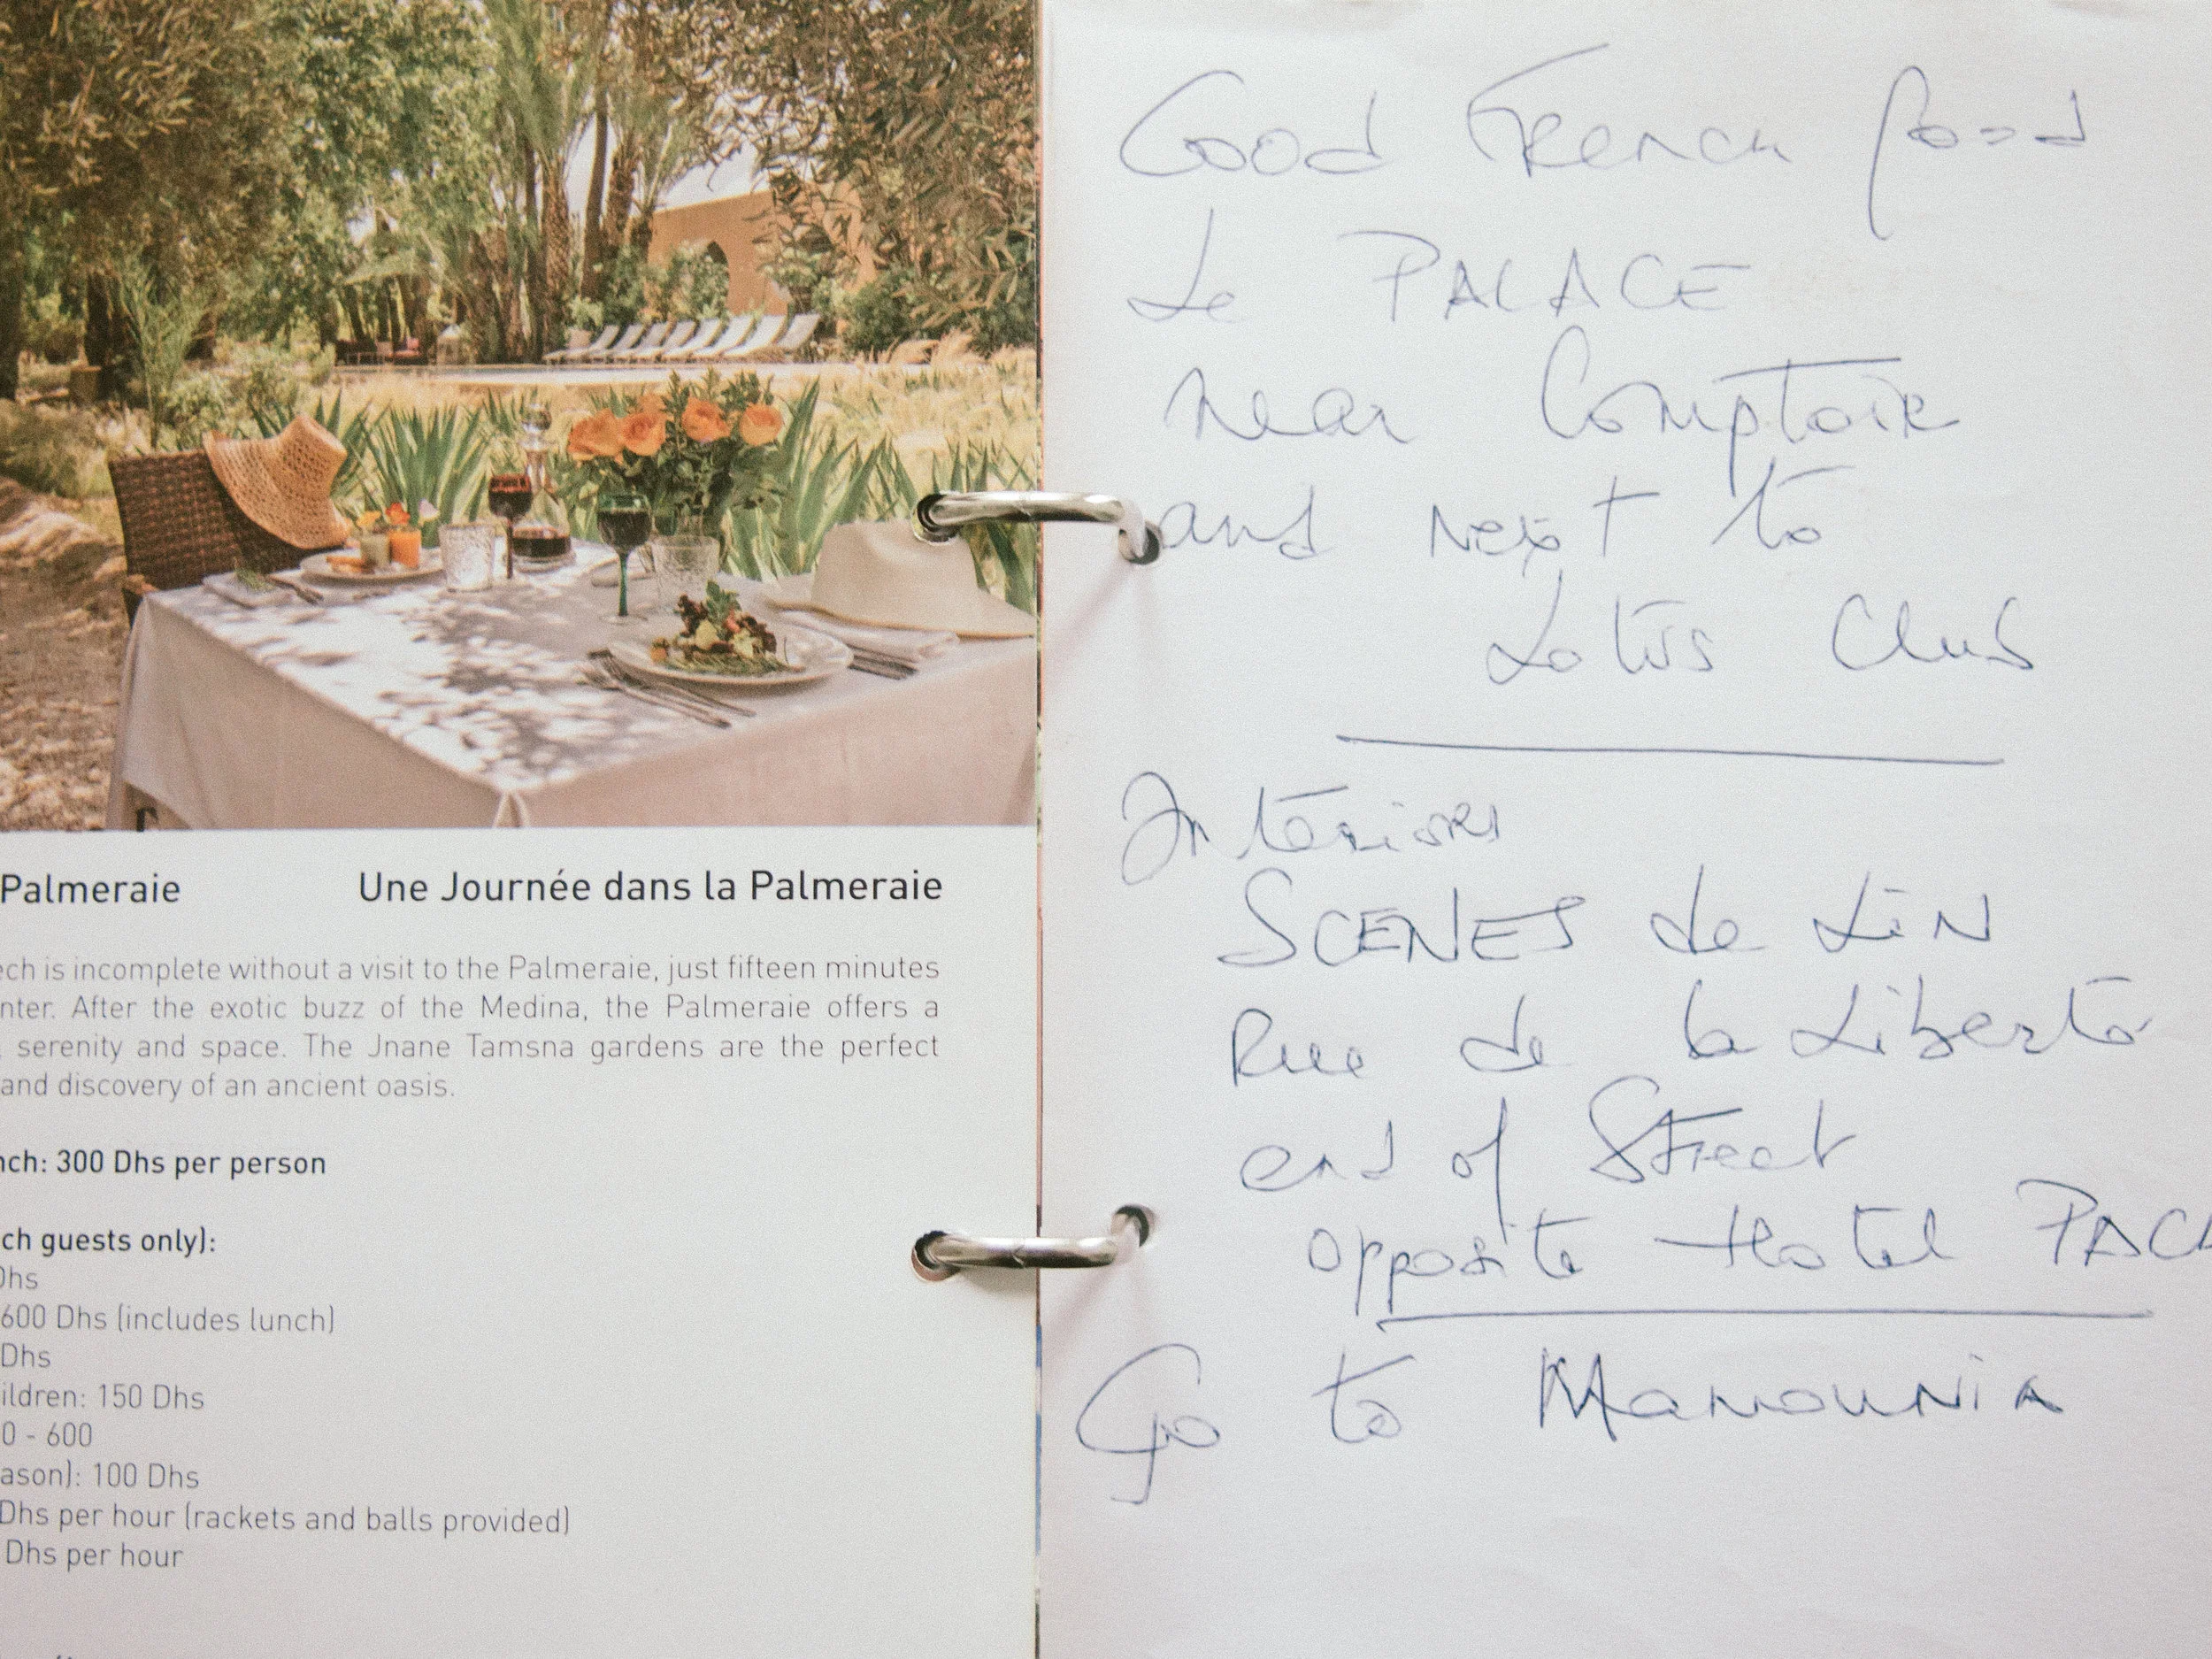 Palmeraie
Une Journée dans la Palmeraie
ech is incomplete without a visit to the Palmeraie, just fifteen minutes
nter. After the exotic buzz of the Medina, the Palmeraie offers a
, serenity and space. The Jnane Tamsna gardens are the perfect
and discovery of an ancient oasis.
nch: 300 Dhs per person
ch guests only):
Dhs
600 Dhs (includes lunch)
Dhs
ildren: 150 Dhs
0 - 600
ason): 100 Dhs
Dhs per hour (rackets and balls provided)
Dhs per hour
Good French food
Le PALACE
near Comptoir
and next to
Lotus Club
Interiors
SCENES de LiN
Rue de la Liberté
end of Street
opposite Hotel PACH
Go to Mamounia